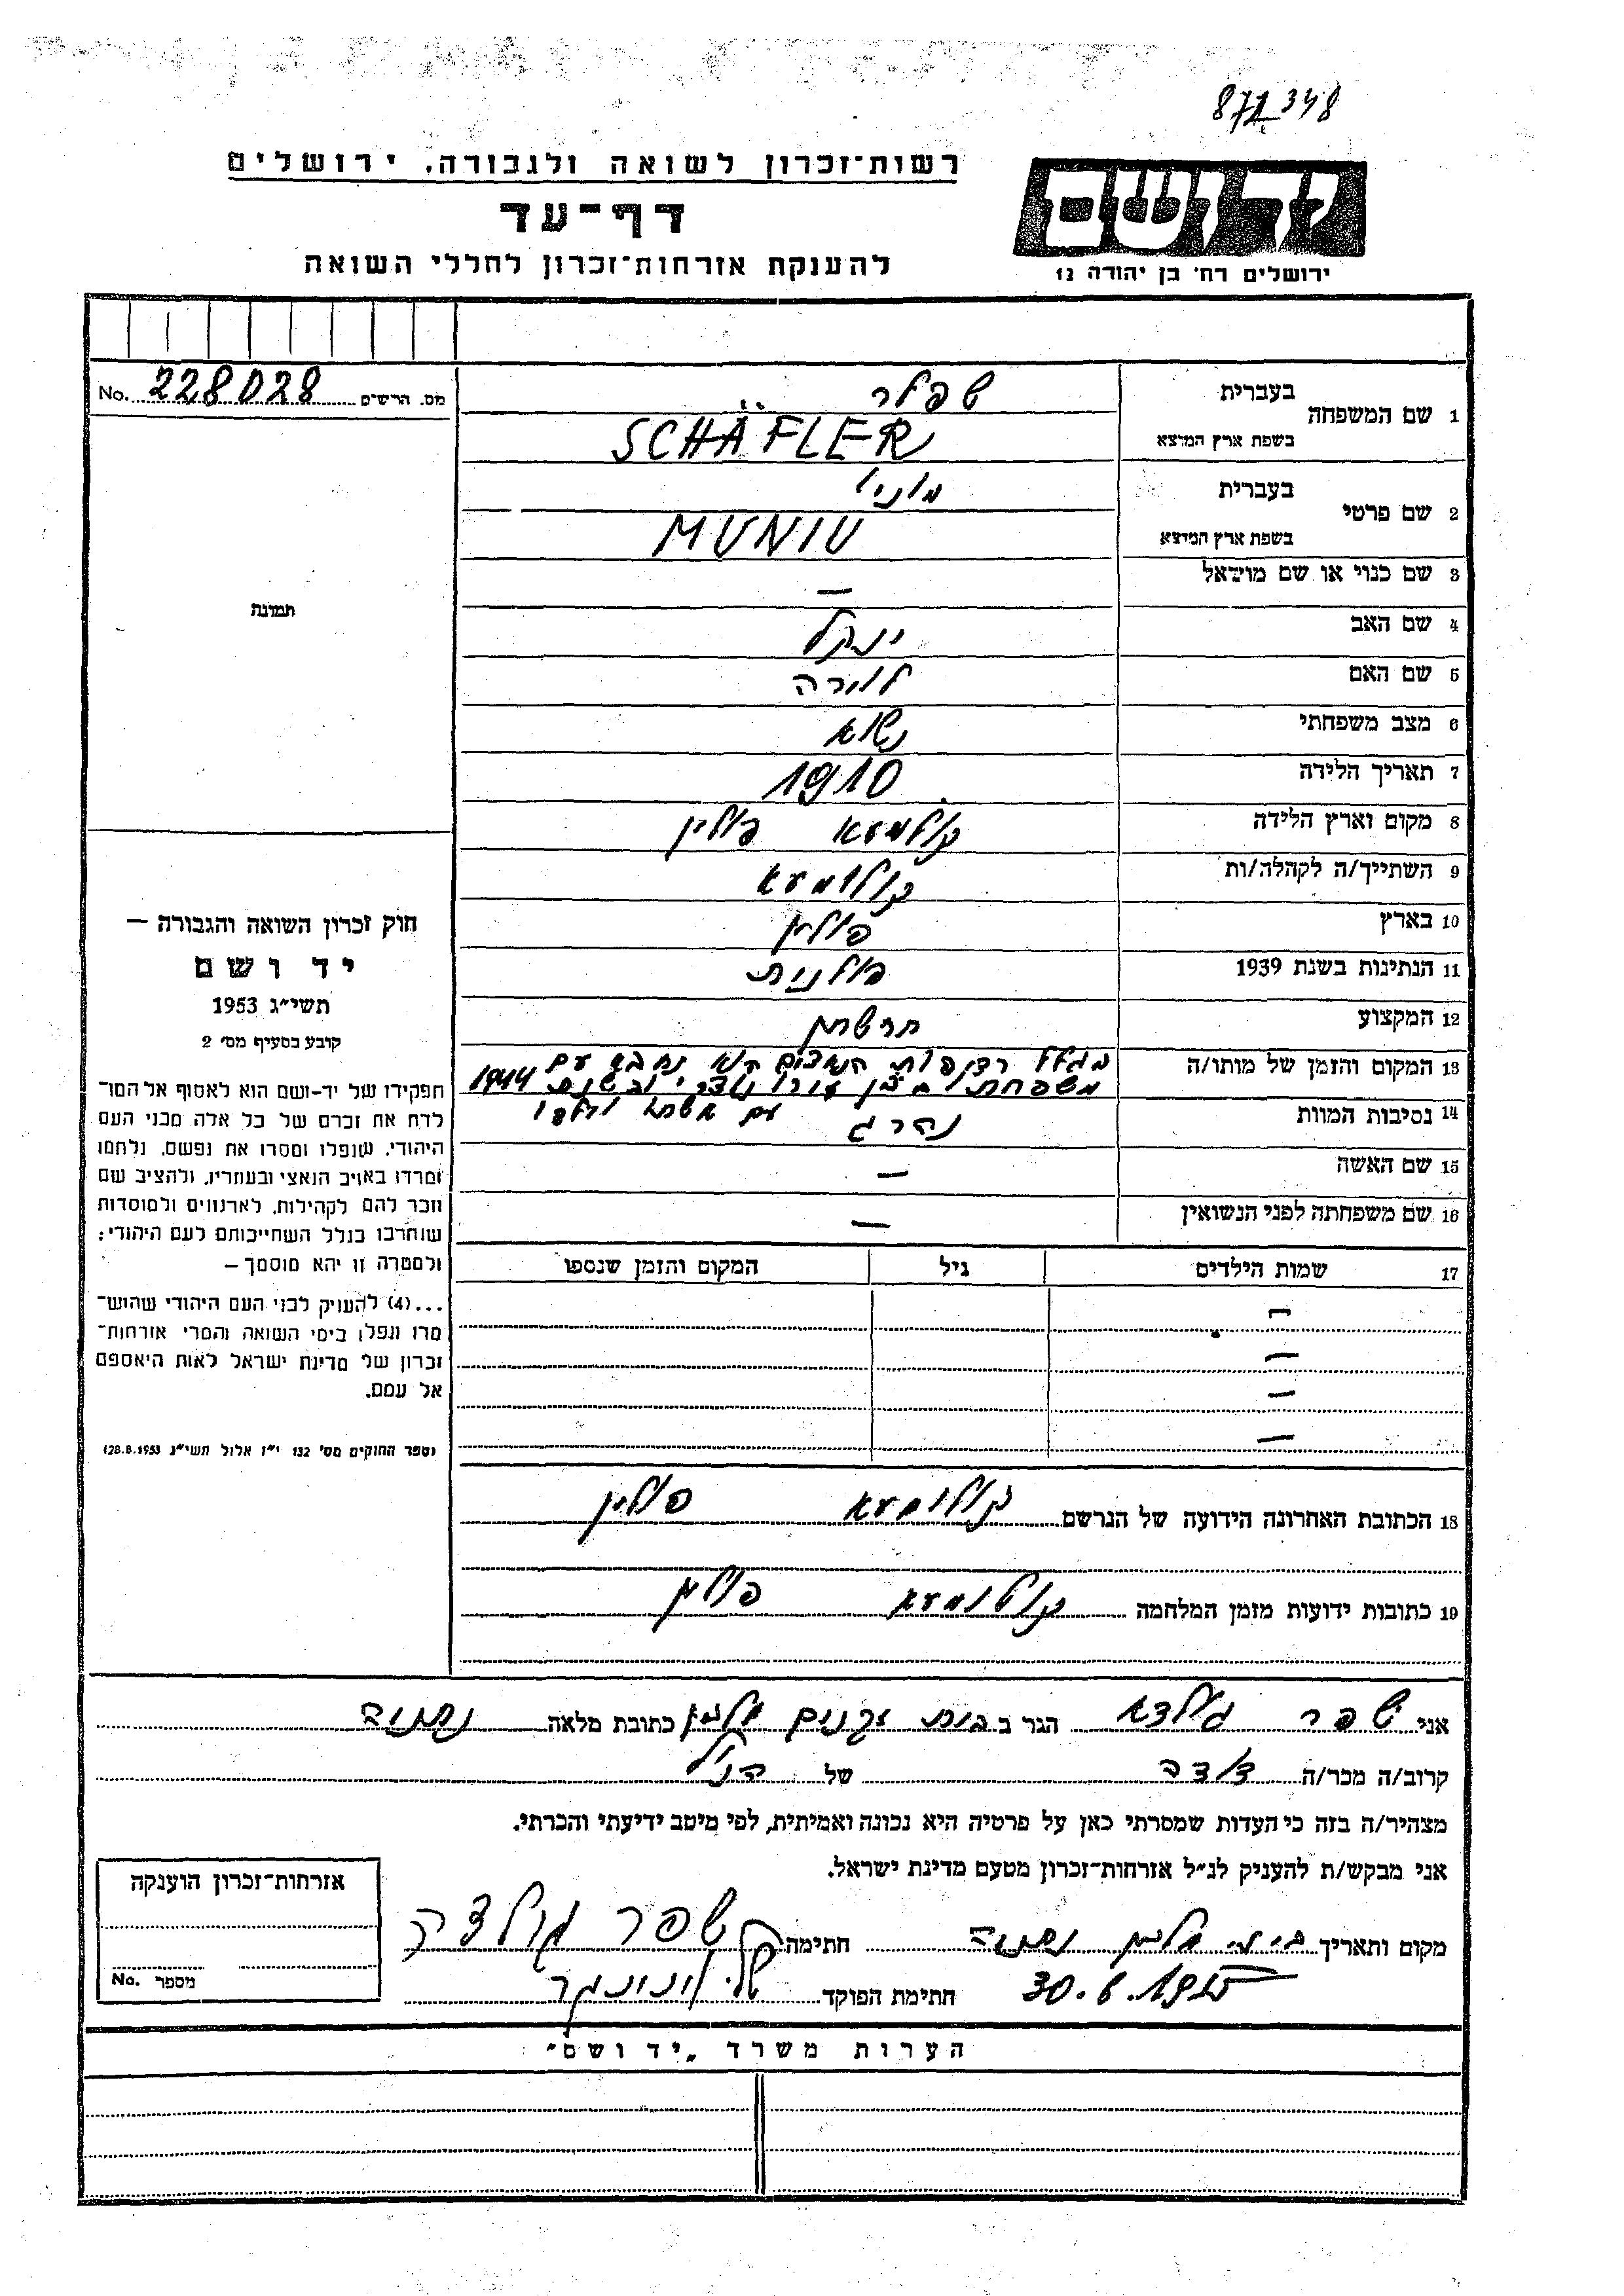 871348
רשות-זכרון לשואה ולגבורה, ירושלים
דף-עד
להענקת אזרחות-זכרון לחללי השואה
יד ושם
ירושלים רח' בן יהודה 12
מס. הרשים No. 228028
1 שם המשפחה בעברית שפלר
בשפת ארץ המוצא SCHÄFLER
2 שם פרטי בעברית מוניו
בשפת ארץ המוצא MUNIU
3 שם כנוי או שם מושאל —
4 שם האב ינקל
5 שם האם לורה
6 מצב משפחתי נשוא
7 תאריך הלידה 1910
8 מקום וארץ הלידה קולמעא פולין
9 השתייך/ה לקהלה/ות קולומעא
10 בארץ פולין
11 הנתינות בשנת 1939 פולנית
12 המקצוע
13 המקום והזמן של מותו/ה בגלל רדיפות הנאצים הוא נחבא עם
משפחתו אצל נוצרי ובשנת 1944
14 נסיבות המוות נהרג עם אשתו וילדו
15 שם האשה —
16 שם משפחתה לפני הנשואין —
17 שמות הילדים גיל המקום והזמן שנספו
—
—
—
—
תמונה
חוק זכרון השואה והגבורה —
יד ושם
תשי"ג 1953
קובע בסעיף מס' 2
תפקידו של יד-ושם הוא לאסוף אל המו-
לדת את זכרם של כל אלה מבני העם
היהודי, שנפלו ומסרו את נפשם, נלחמו
ומרדו באויב הנאצי ובעוזריו, ולהציב שם
וזכר להם לקהילות, לארגונים ולמוסדות
שנחרבו בגלל השתייכותם לעם היהודי;
ולמטרה זו יהא מוסמך —
...(4) להעניק לבני העם היהודי שהוש-
מדו ונפלו בימי השואה והמרי אזרחות-
זכרון של מדינת ישראל לאות היאספם
אל עמם.
(ספר החוקים מס' 132 י"ז אלול תשי"ג 28.8.1953)
18 הכתובת האחרונה הידועה של הנרשם קולומעא פולין
19 כתובות ידועות מזמן המלחמה קולומעא פולין
אני שפר גולדא הגר ב בית זקנים כתובת מלאה
קרוב/ה מכר/ה דודה של הנ"ל
מצהיר/ה בזה כי העדות שמסרתי כאן על פרטיה היא נכונה ואמיתית, לפי מיטב ידיעתי והכרתי.
אני מבקש/ת להעניק לנ"ל אזרחות-זכרון מטעם מדינת ישראל.
מקום ותאריך חתימה שפר גולדה
30.6.19 חתימת הפוקד
אזרחות-זכרון הוענקה
מספר No.
הערות משרד „יד ושם"